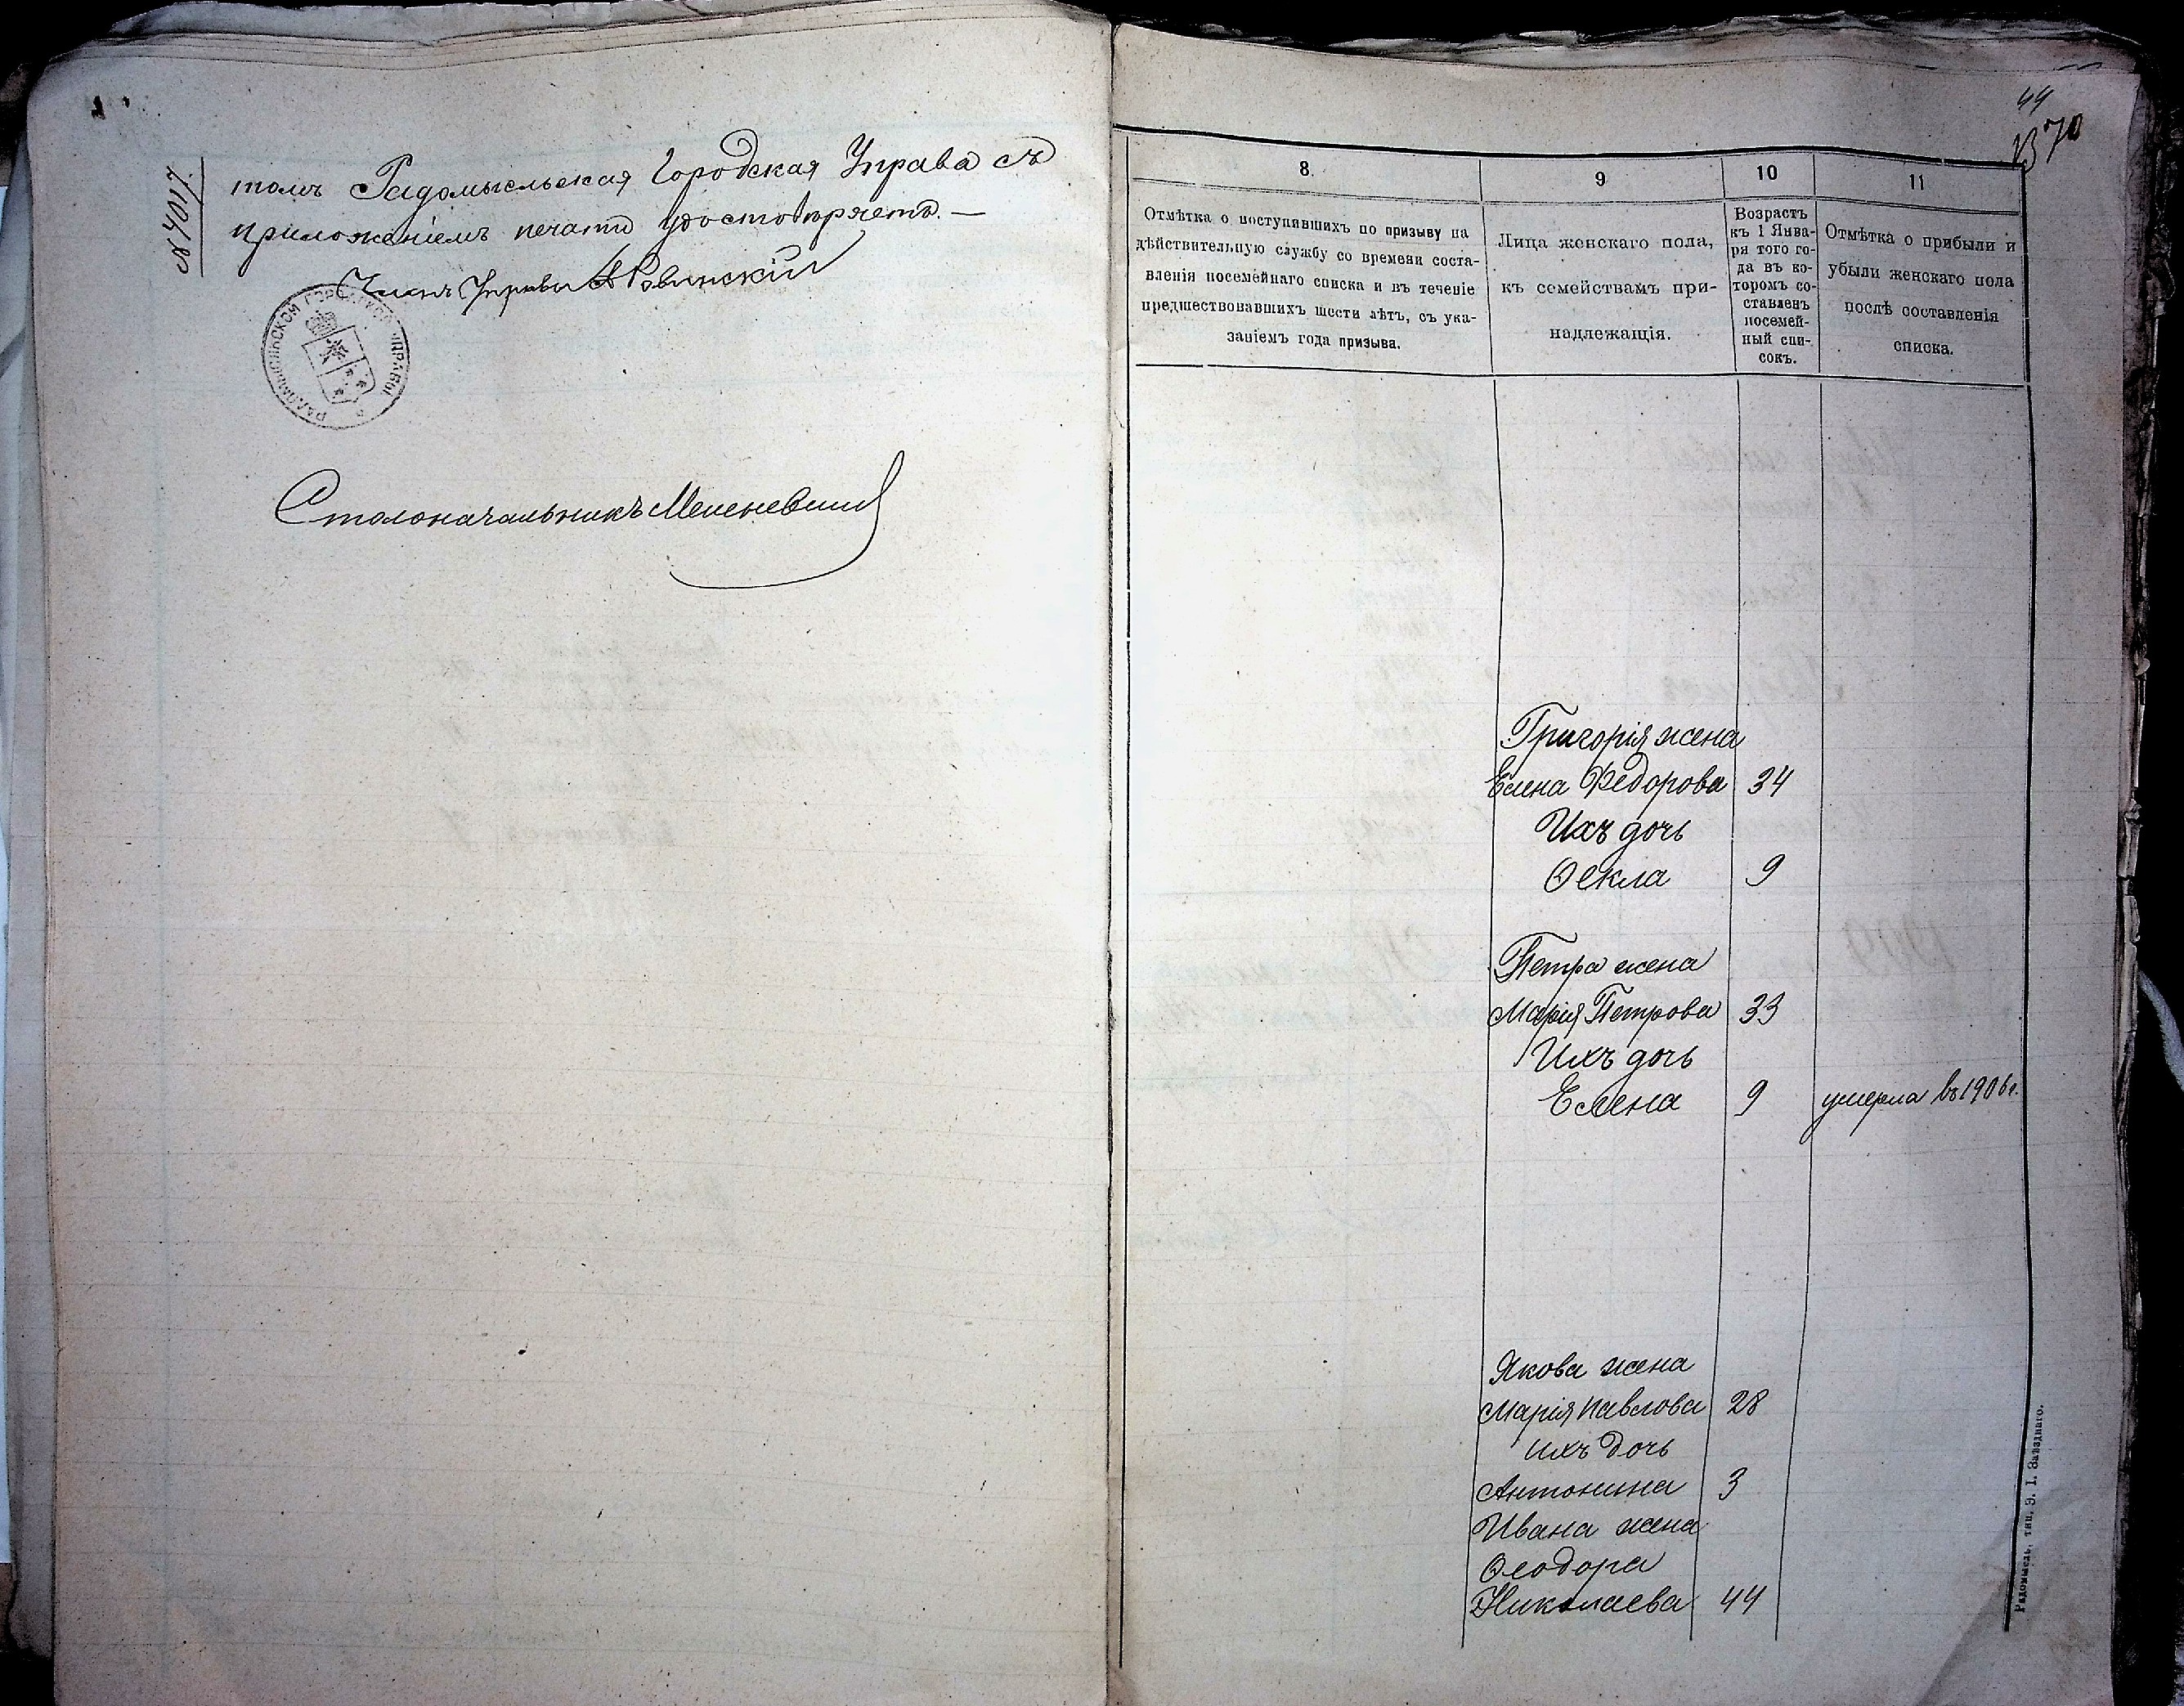 № 4017.
томъ Радомысльская Городская Управа съ
приложеніемъ печати удостовѣряетъ. —
Членъ Управы А Ровинскій
РАДОМЫСЛЬСКОЙ ГОРОДСКОЙ УПРАВЫ
Столоначальникъ
44
70
8.
9
10
11
Отмѣтка о поступившихъ по призыву на
дѣйствительную службу со времени соста-
вленія посемейнаго списка и въ теченіе
предшествовавшихъ шести лѣтъ, съ ука-
заніемъ года призыва.
Лица женскаго пола,
къ семействамъ при-
надлежащія.
Возрастъ
къ 1 Янва-
ря того го-
да въ ко-
торомъ со-
ставленъ
посемей-
ный спи-
сокъ.
Отмѣтка о прибыли и
убыли женскаго пола
послѣ составленія
списка.
Григорія жена
Елена Федорова 34
Ихъ дочь
Ѳекла 9
Петра жена
Марія Петрова 33
Ихъ дочь
Елена 9 умерла въ 1906 г.
Якова жена
Марія Павлова 28
ихъ дочь
Антонина 3
Ивана жена
Ѳеодора
Николаева 44
Радомысль, тип. Э. І. Заѣзднаго.